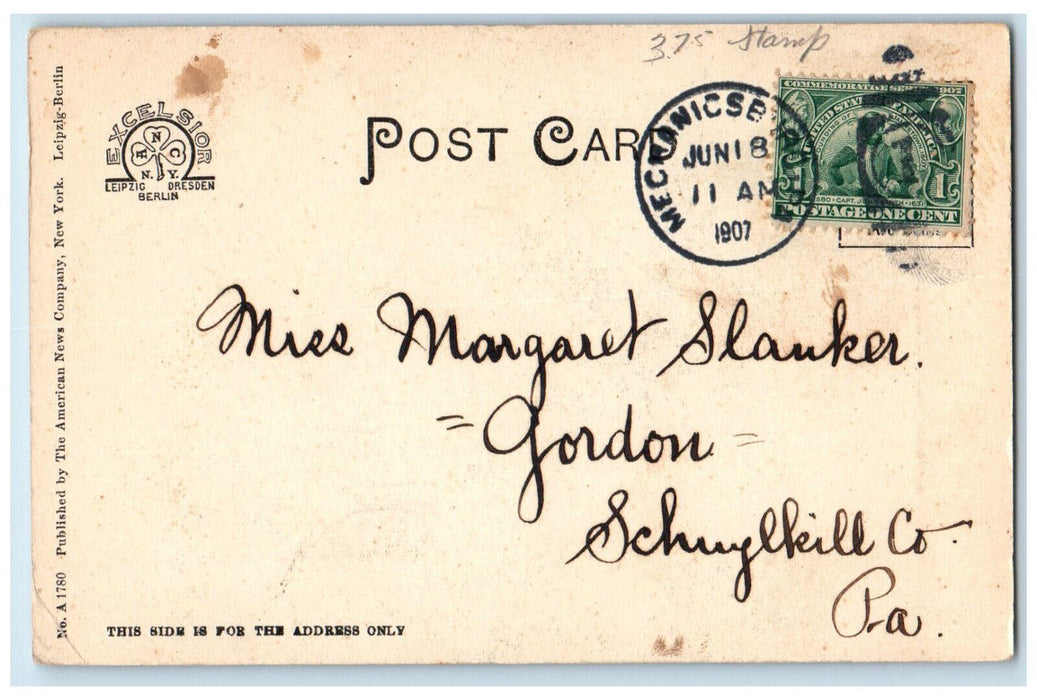 3.75 Stamp
EXCELSIOR
A N C
N.Y.
LEIPZIG DRESDEN
BERLIN
POST CARD
MECHANICSBURG
JUN 18
11 AM
1907
COMMEMORATIVE SERIES 1907
UNITED STATES OF AMERICA
1580 · CAPT. JOHN SMITH · 1631
1 1
POSTAGE ONE CENT
Miss Margaret Slanker.
= Gordon =
Schuylkill Co.
Pa.
THIS SIDE IS FOR THE ADDRESS ONLY
No. A 1780 Published by The American News Company, New York. Leipzig-Berlin